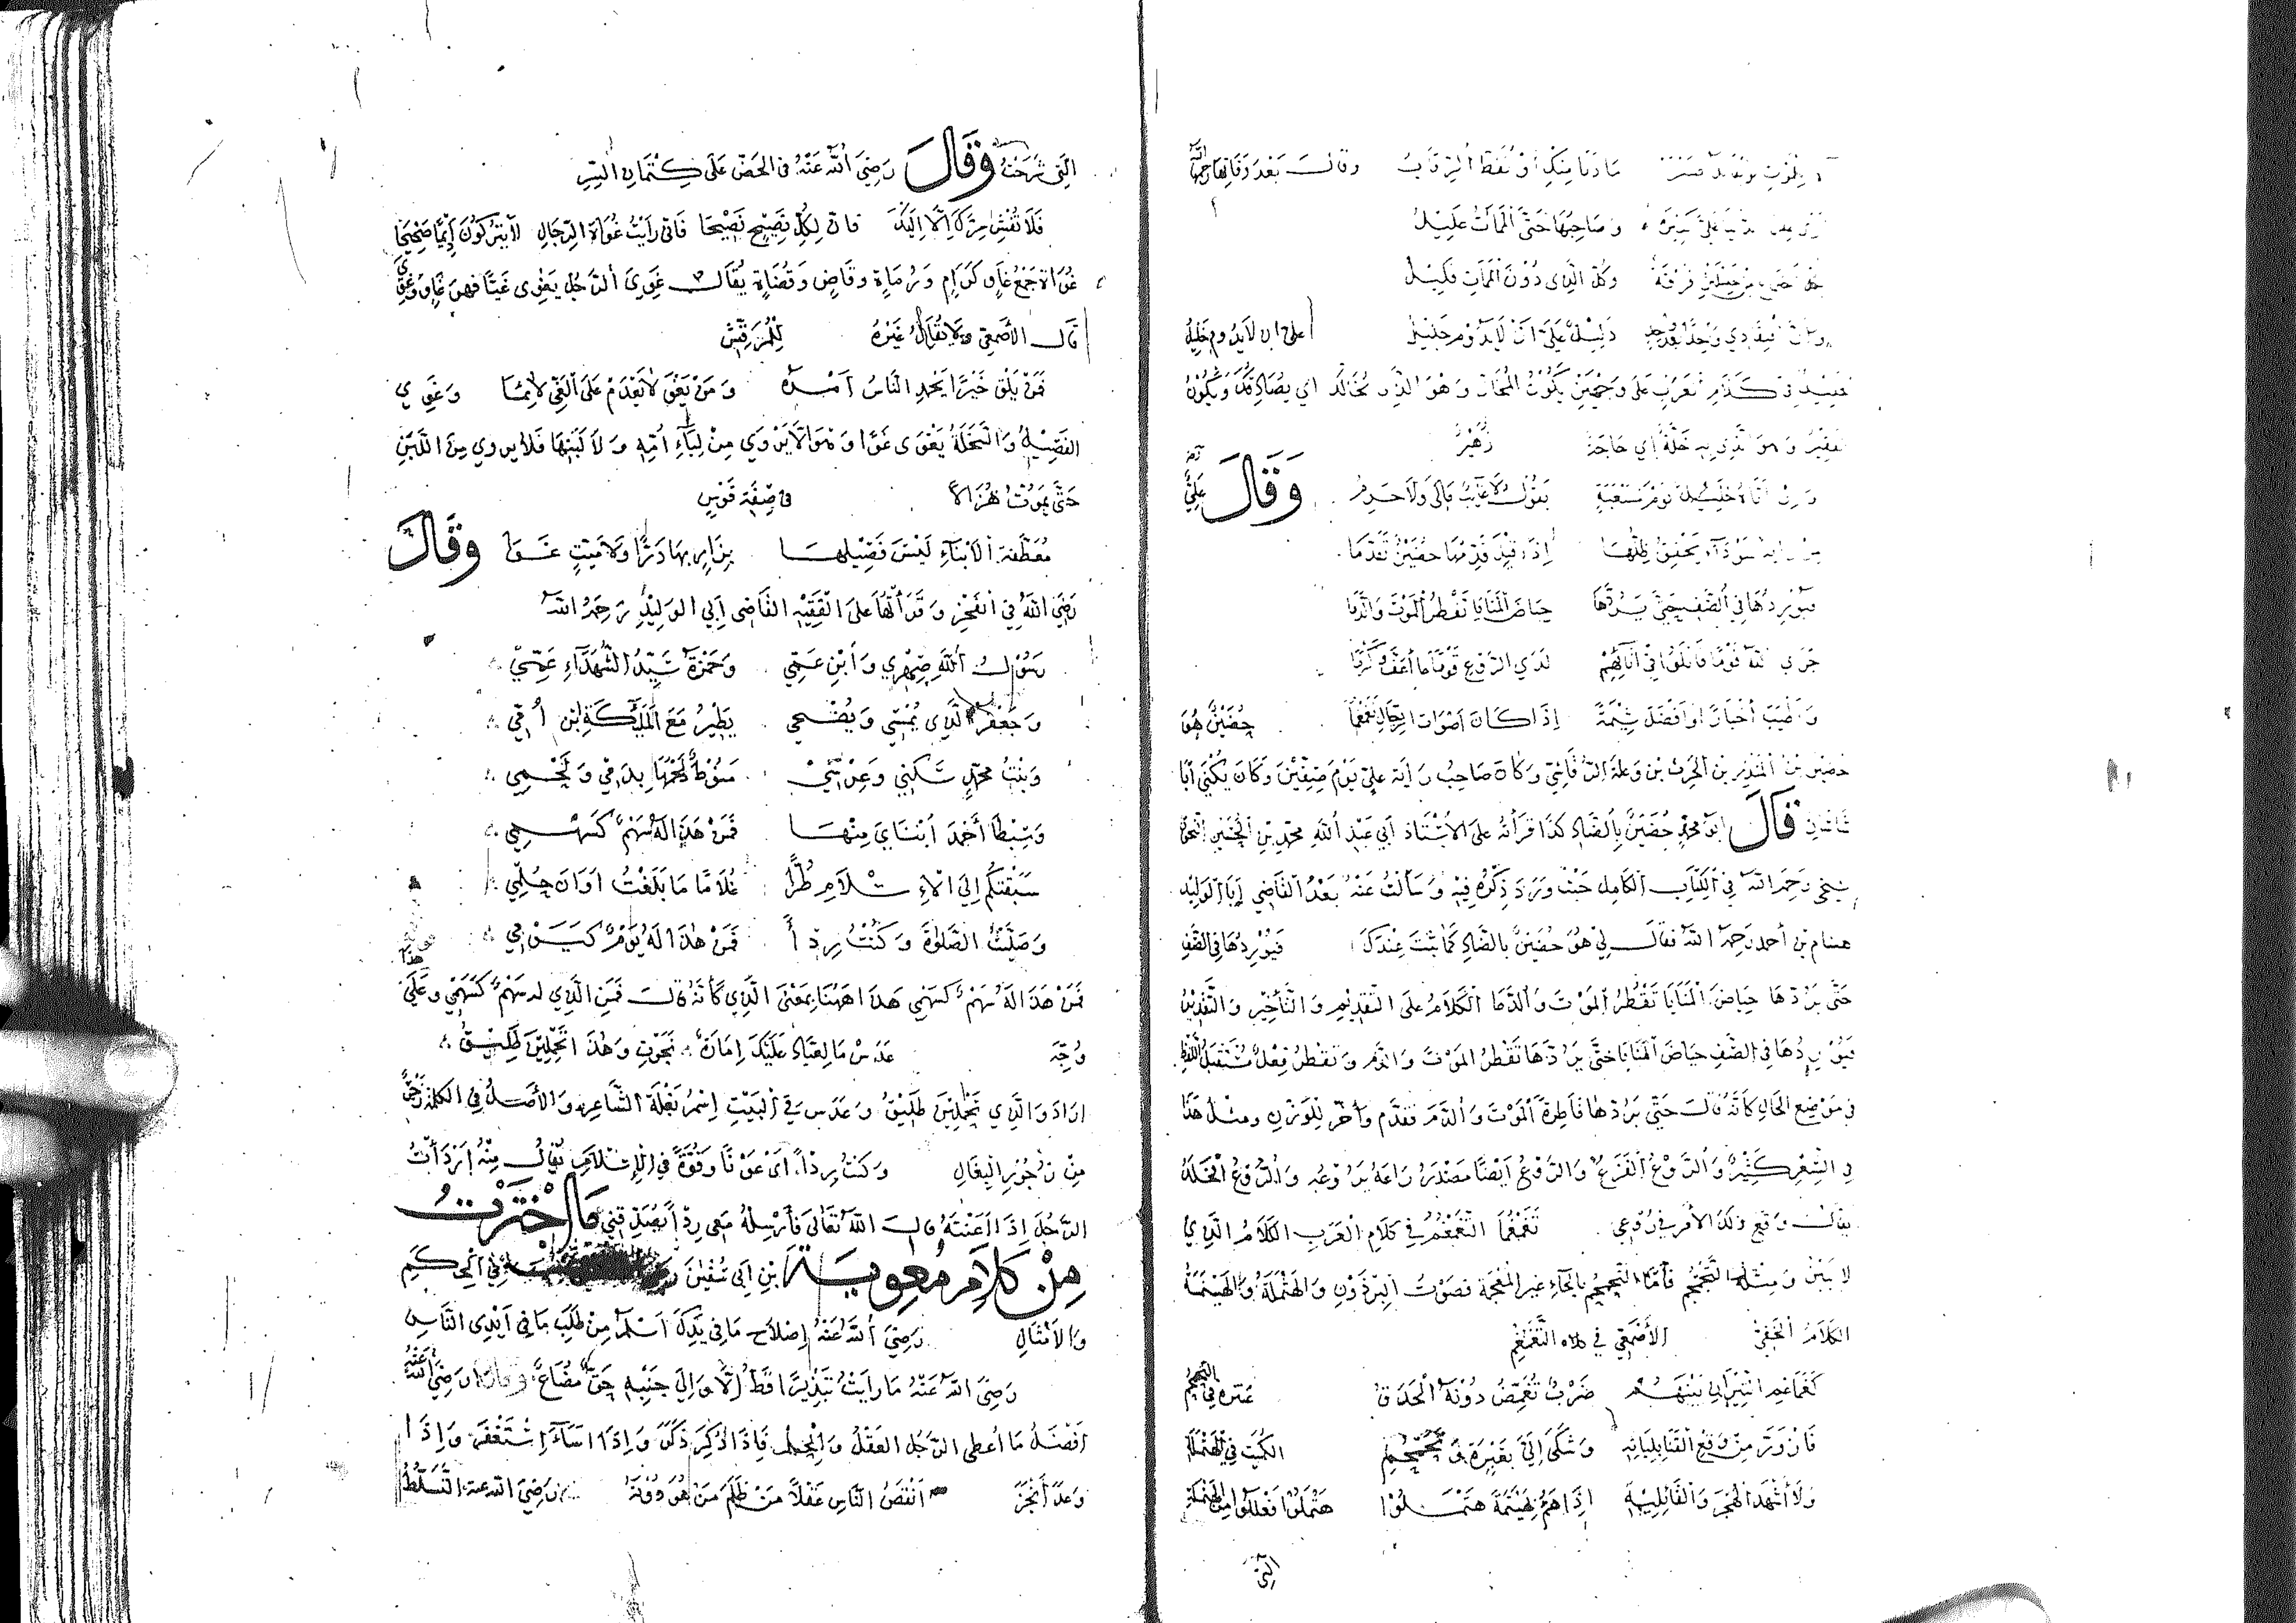 وقالت بعد وفاتها رحمها الله
وصاحبها حتى الممات عليل
فرقة وكل الذي دون الممات قليل
دليل على ان لا يدوم خليل على ان لا يدوم خليل
في كلام العرب على وجهين يكون المخال وهو الذي يخالك اي يصادقك ويكون
الفقير وهو الذي به خلة اي حاجة زهير
وان اتاه خليل يوم مسغبة يقول لا غايب مالي ولا حرم وقال علي
سوداء يخفق ظلها اذا قيل قدمها حضين تقدما
فيوردها في الصف حتى يردها حياض المنايا تقطر الموت والدما
جزى الله قوما قاتلوا في لقائهم لدى الروع قوما ما اعف واكرما
واطيب اخبارا وافضل شيمة اذا كان اصوات الرجال تغمغما حضين هو
حضين بن المنذر بن الحرث بن وعلة الرقاشي وكان صاحب راية علي يوم صفين وكان يكنى ابا
ساسان قال ابو محمد حضين بالضاد كذا قراته على الاستاذ ابي عبد الله محمد بن الحسين
شيخي رحمه الله في الكتاب الكامل حيث ورد ذكره فيه وسالت عنه بعد القاضي ابا الوليد
هشام بن احمد رحمه الله فقال لي هو حضين بالضاد كما ثبت عندك فيوردها في الصف
حتى يردها حياض المنايا تقطر الموت والدما الكلام على التقديم والتأخير والتقدير
فيوردها في الصف حياض المنايا حتى يردها تقطر الموت والدم وتقطر فعل مستقبل
في موضع الحال كأنه قال حتى يردها قاطرة الموت والدم فقدم وأخر للوزن ومثل هذا
في الشعر كثير والروع الفزع والروع ايضا مصدر راعه يروعه والروع الخلد
يقال وقع ذلك الأمر في روعي تغمغما التغمغم في كلام العرب الكلام الذي
لا يبين ومثله التجمجم فأما التحمحم بالحاء غير المعجمة فصوت البرذون والهتملة والهينمة
الكلام الخفي الأصمعي في التغمغم
كغماغم الثيران بينهم ضرب تغمض دونه الحدق عنترة في التحمحم
فازور من وقع القنا بلبانه وشكى الي بعبرة وتحمحم الكميت في الهتملة
ولا أشهد الهجر والقائليه اذا هم بهينمة هتملوا هتملوا فعللوا من الهتملة
التي
التي شرحت وقال رضي الله عنه في الحض على كتمان السر
فلا تفش سرك الا اليك فان لكل نصيح نصيحا فاني رأيت غواة الرجال لا يتركون اديما صحيحا
غواة جمع غاو كرام ورماة وقاض وقضاة يقال غوي الرجل يغوى غيا فهو غاو وغوي
قال الأصمعي ولا يقال غيره للمرقش
فمن يلق خيرا يحمد الناس أمره ومن يغو لا يعدم على الغي لائما وغوي
الفصيل والسخلة يغوى غوا وهو ألا يروي من لباء امه ولا لبنها فلا يروي من اللبن
حتى يموت هزالا في صفة قوس
معطفة الأثناء ليس فصيلها برازئها درا ولا ميت غوا وقال
رضي الله في الفخر وقد قرأتها على الفقيه القاضي ابي الوليد رحمه الله
رسول الله صهري وابن عمي وحمزة سيد الشهداء عمي
وجعفر الذي يمسي ويضحي يطير مع الملئكة ابن أمي
وبنت محمد سكني وعرسي مسوط لحمها بدمي ولحمي
وسبطا أحمد ابناي منها فمن هذا له سهم كسهمي
سبقتكم إلى الاسلام طرا غلاما ما بلغت أوان حلمي
وصليت الصلوة وكنت ردأ فمن هذا له يوم كيومي
فمن هذا له سهم كسهمي هذا ههنا بمعنى الذي كأنه قال فمن الذي له سهم كسهمي وعلى هذا
وجه عدس ما لعباد عليك امارة نجوت وهذا تحملين طليق
اراد والذي تحملين طليق وعدس في البيت اسم بغلة الشاعر والأصل في الكلمة زجر
من زجور البغال وكنت ردا اي عونا وقوة في الاسلام يقال منه ارددأت
الرجل اذا اعنته قال الله تعالى فأرسله معي ردا يصدقني ما اخترت
من كلام معوية بن ابي سفين في الحكم
والامثال رضي الله عنه اصلاح ما في يدك أسلم من طلب ما في ايدي الناس
رضي الله عنه ما رأيت تبذيرا قط الا والى جنبه حق مضاع وقال رضي الله عنه
افضل ما أعطي الرجل العقل والحلم فاذا ذكر ذكر واذا اساء استغفر واذا
وعد أنجز انقص الناس عقلا من ظلم من هو دونه رضي الله عنه التسلط